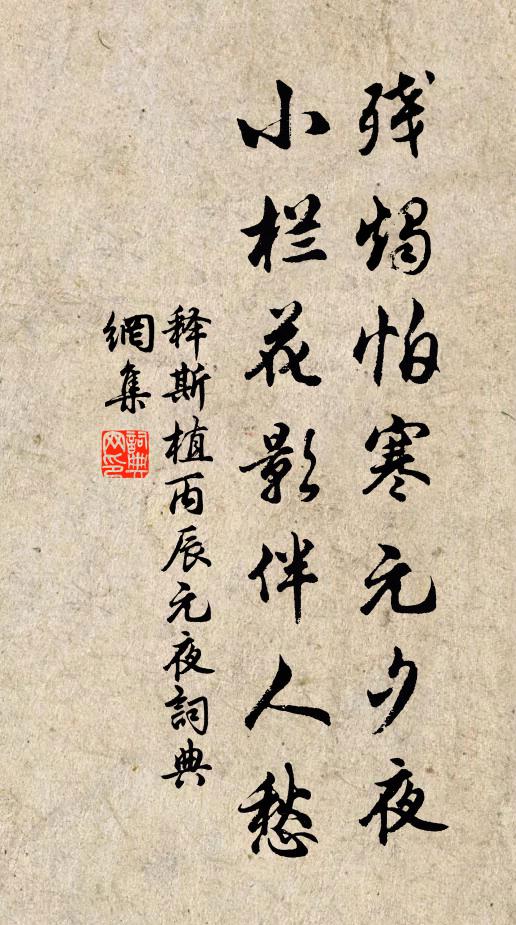 残烛怕寒元夕夜
小栏花影伴人愁
释斯植丙辰元夜詞典
網集
詞典
网印